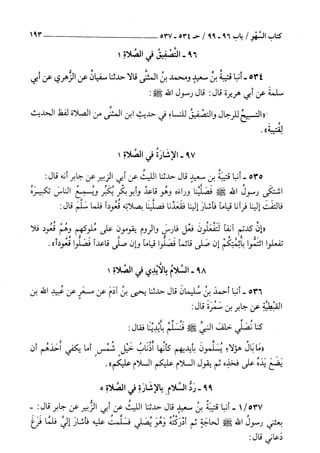 كتاب السَّهْو / باب ٩٦ - ٩٩ / حـ ٥٣٤ - ٥٣٧ ١٩٣
٩٦ - التَّصْفيق في الصَّلاة ١
٥٣٤ - أنبا قتيبة بنُ سعيدٍ ومحمد بنُ المثنَّى قالا حدثنا سفيانُ عن الزُّهري عن أبي
سلمةَ عن أبي هريرة قال: قال رسول الله ﷺ:
«التسبيحُ للرجال والتصفيقُ للنساء في حديث ابن المثنى من الصلاة لفظ الحديث
لِقُتيبة».
٩٧ - الإشارَةُ في الصَّلاة ١
٥٣٥ - أنبا قتيبة بنُ سعيدٍ قال حدثنا الليثُ عن أبي الزبير عن جابر أنه قال:
اشتكى رسولُ الله ﷺ فصَلَّيْنا وراءَه وهُو قاعدٌ وأبو بكرٍ يُكبِّر ويُسمِعُ الناسَ تكبيرَهُ
فالتفَتَ إلينا فرآنا قياماً فأشارَ إلينا فقعَدْنا فصلَّينا بصلاتِه قُعُوداً فلما سَلَّمَ قال:
«إنْ كدتم آنفاً لَتَفْعلُونَ فعْلَ فارسَ والرومِ يقومون على مُلوكهم وهُمْ قُعُود فلا
تفعلوا ائتَمُّوا بأئمتِكُمْ إن صلى قائماً فصَلُّوا قياماً وإن صلَّى قاعداً فصَلُّوا قُعُوداً».
٩٨ - السَّلامُ بالأيْدي في الصَّلاة ١
٥٣٦ - أنبا أحمدُ بنُ سُليمانَ قال حدثنا يحيى بنُ آدَمَ عن مسعَرٍ عن عُبيدِ الله بنِ
القبْطيَّة عن جابر بن سَمُرَة قال:
كنا نُصَلِّي خلفَ النبيِّ ﷺ فنُسَلِّمُ بأيْدِينا فقال:
«مَا بَالُ هؤلاء يُسلِّمونَ بأيديهم كأنَّها أذْنابُ خَيْلٍ شُمُسٍ أما يكفي أحدَهُم أن
يضَعَ يدَهُ على فخذِه ثم يقول السلام عليكم السلام عليكم».
٩٩ - رَدُّ السَّلام بالإشارَة في الصَّلاة ٥
٥٣٧/ ١ - أنبا قتيبةُ بنُ سعيدٍ قال حدثنا الليثُ عن أبي الزُّبير عن جابر قال: -
بعثني رسولُ الله ﷺ لحاجَةٍ ثم أدرَكْتُه وَهُو يُصَلي فسلَّمتُ عليه فأشارَ إليَّ فلمَّا فَرَغَ
دَعاني قال: